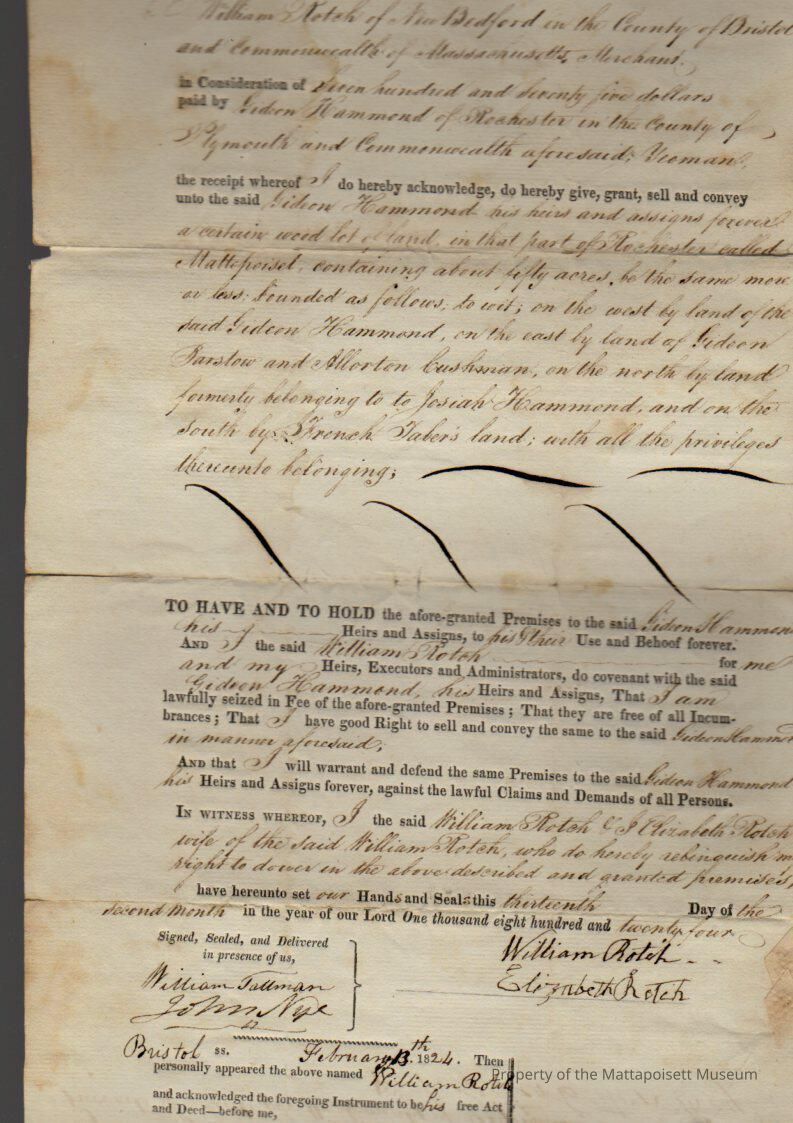 William Rotch of New Bedford in the County of Bristol
and Commonwealth of Massachusetts, Merchant,
in Consideration of Seven hundred and seventy five dollars
paid by Gideon Hammond of Rochester in the County of
Plymouth and Commonwealth aforesaid, Yeoman,
the receipt whereof I do hereby acknowledge, do hereby give, grant, sell and convey
unto the said Gideon Hammond his heirs and assigns forever
a certain wood lot of land, in that part of Rochester called
Mattepoiset, containing about fifty acres, be the same more
or less; bounded as follows, to wit; on the west by land of the
said Gideon Hammond, on the east by land of Gideon
Barstow and Allerton Cushman, on the north by land
formerly belonging to to Josiah Hammond, and on the
South by French Taber's land; with all the privileges
thereunto belonging;
TO HAVE AND TO HOLD the afore-granted Premises to the said Gideon Hammon
his Heirs and Assigns, to his & their Use and Behoof forever.
AND I the said William Rotch for me
and my Heirs, Executors and Administrators, do covenant with the said
Gideon Hammond, his Heirs and Assigns, That I am
lawfully seized in Fee of the afore-granted Premises; That they are free of all Incum-
brances; That I have good Right to sell and convey the same to the said Gideon Hammon
in manner aforesaid;
AND that I will warrant and defend the same Premises to the said Gideon Hammond
his Heirs and Assigns forever, against the lawful Claims and Demands of all Persons.
IN WITNESS WHEREOF, I the said William Rotch & I Elizabeth Rotch
wife of the said William Rotch, who do hereby relinquish m
right to dower in the above described and granted premises,
have hereunto set our Hands and Seals this thirteenth Day of the
second month in the year of our Lord One thousand eight hundred and twenty four
Signed, Sealed, and Delivered
in presence of us,
William Tallman
John Nye
William Rotch
Elizabeth Rotch
Bristol ss. February 13.th 1824. Then
personally appeared the above named William Rotch
and acknowledged the foregoing Instrument to be his free Act
and Deed—before me,
Property of the Mattapoisett Museum